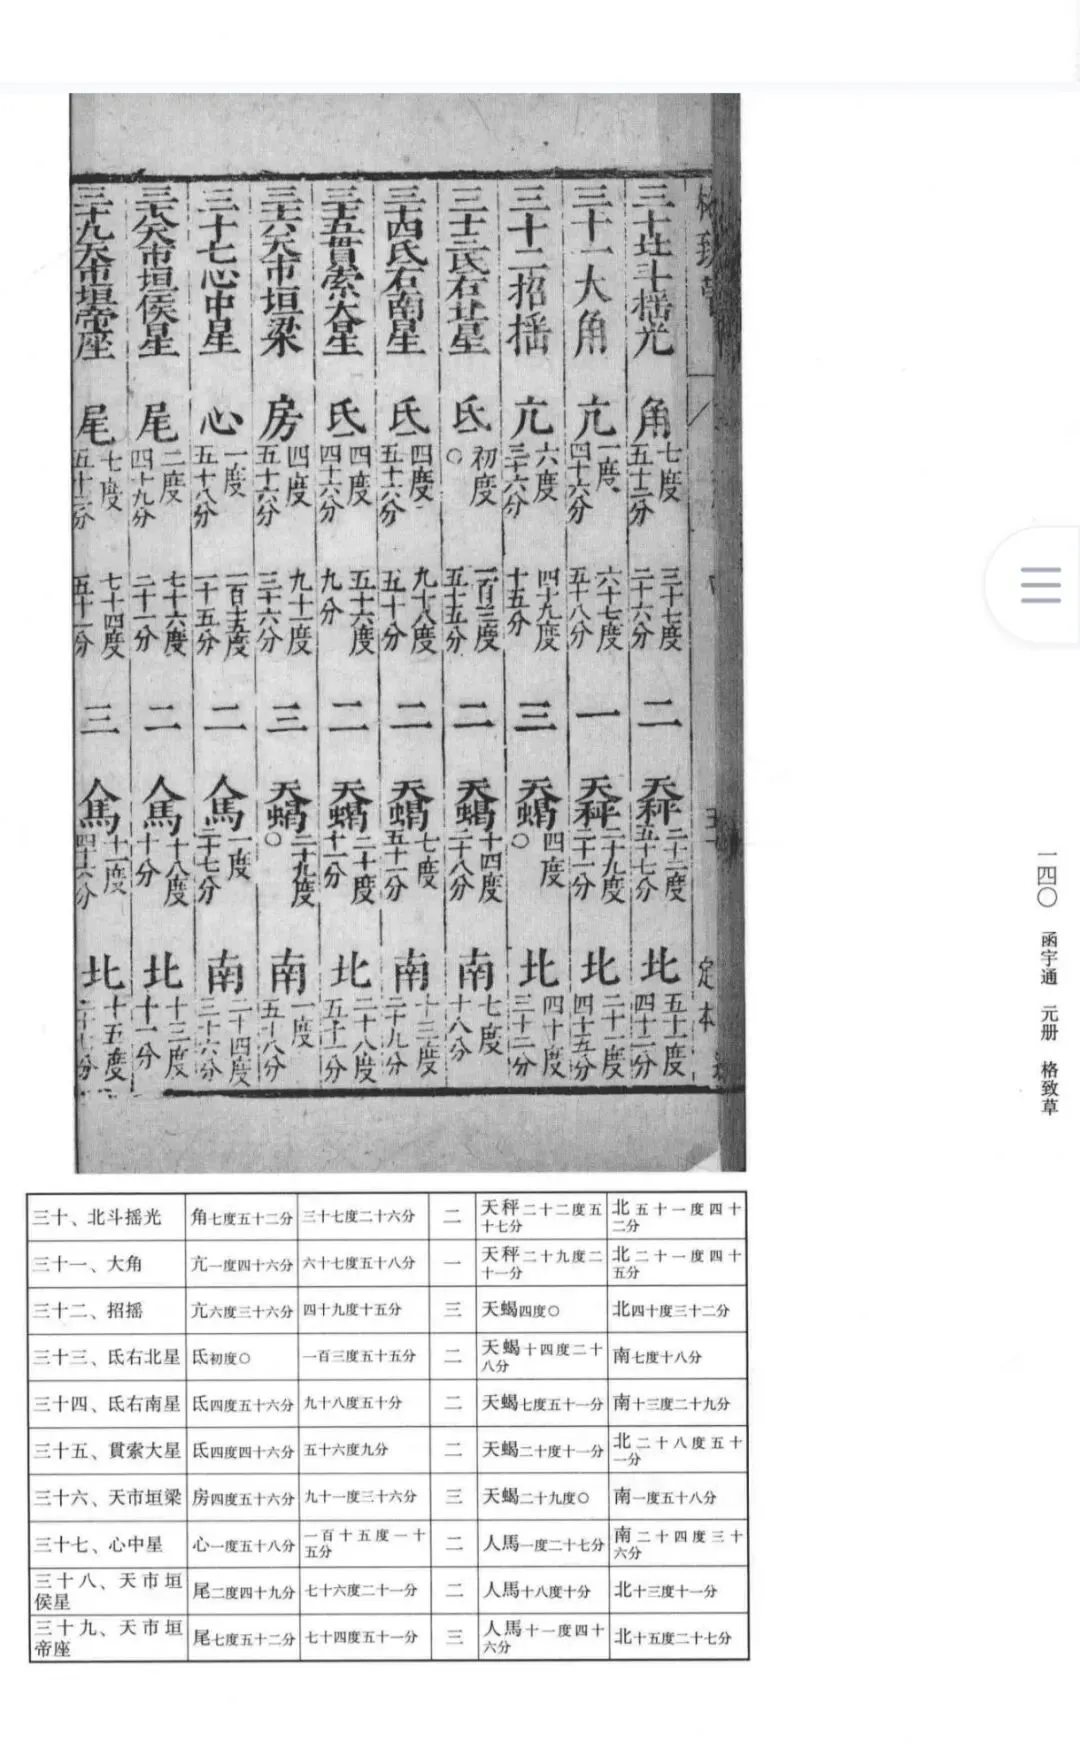 三十北斗揺光 角 七度五十二分 三十七度二十六分 二 天秤 二十二度五十七分 北 五十一度四十二分
三十一大角 亢 一度四十六分 六十七度五十八分 一 天秤 二十九度二十一分 北 二十一度四十五分
三十二招揺 亢 六度三十六分 四十九度十五分 三 天蝎 四度〇 北 四十度三十二分
三十三氐右北星 氐 初度〇 一百三度五十五分 二 天蝎 十四度二十八分 南 七度十八分
三十四氐右南星 氐 四度五十六分 九十八度五十分 二 天蝎 七度五十一分 南 十三度二十九分
三十五貫索大星 氐 四度四十六分 五十六度九分 二 天蝎 二十度十一分 北 二十八度五十一分
三十六天市垣梁 房 四度五十六分 九十一度三十六分 三 天蝎 二十九度〇 南 一度五十八分
三十七心中星 心 一度五十八分 一百十五度一十五分 二 人馬 一度二十七分 南 二十四度三十六分
三十八天市垣侯星 尾 二度四十九分 七十六度二十一分 二 人馬 十八度十分 北 十三度十一分
三十九天市垣帝座 尾 七度五十二分 七十四度五十一分 三 人馬 十一度四十六分 北 十五度二十七分
一四〇 函宇通 元册 格致草
三十、北斗摇光 角七度五十二分 三十七度二十六分 二 天秤二十二度五十七分 北五十一度四十二分
三十一、大角 亢一度四十六分 六十七度五十八分 一 天秤二十九度二十一分 北二十一度四十五分
三十二、招摇 亢六度三十六分 四十九度十五分 三 天蝎四度〇 北四十度三十二分
三十三、氐右北星 氐初度〇 一百三度五十五分 二 天蝎十四度二十八分 南七度十八分
三十四、氐右南星 氐四度五十六分 九十八度五十分 二 天蝎七度五十一分 南十三度二十九分
三十五、貫索大星 氐四度四十六分 五十六度九分 二 天蝎二十度十一分 北二十八度五十一分
三十六、天市垣梁 房四度五十六分 九十一度三十六分 三 天蝎二十九度〇 南一度五十八分
三十七、心中星 心一度五十八分 一百十五度一十五分 二 人馬一度二十七分 南二十四度三十六分
三十八、天市垣侯星 尾二度四十九分 七十六度二十一分 二 人馬十八度十分 北十三度十一分
三十九、天市垣帝座 尾七度五十二分 七十四度五十一分 三 人馬十一度四十六分 北十五度二十七分